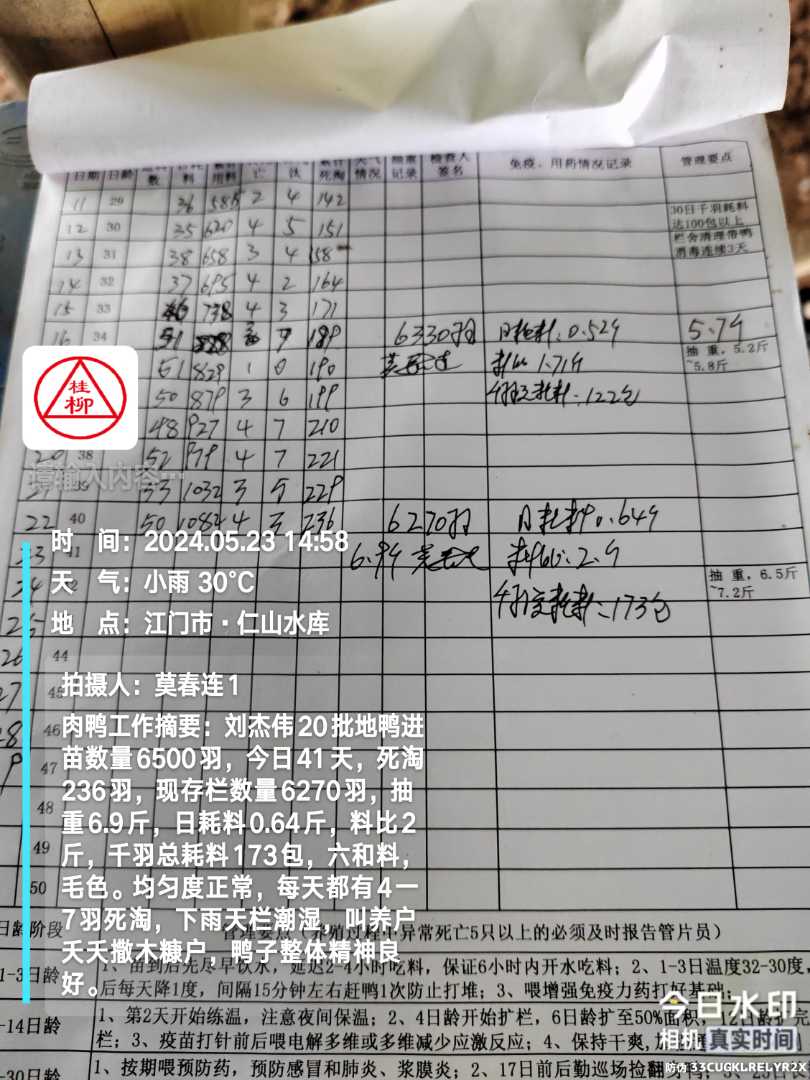 日期 日龄 数 料 用料 亡 汰 死淘 情况 记录 签名 免疫、用药情况记录 管理要点
11 29 36 585 2 4 142
30日千羽耗料
12 30 35 620 4 5 151 达100包以上
栏舍清理带鸭
13 31 38 658 3 4 158 消毒连续3天
14 32 37 695 4 2 164
15 33 738 4 3 171
16 34 51 7 189 6330羽 日耗料:0.52斤 5.7斤
51 829 1 0 190 料比1.71斤 抽重,5.2斤
~5.8斤
50 879 3 6 199 千羽总耗料:122包
48 927 4 7 210
20 38 52 979 4 7 221
53 1032 3 5 229
22 40 50 1082 4 3 236 6270羽 日耗料0.64斤
23 41 6.9斤 料比:2斤
抽重,6.5斤
~7.2斤
千羽总耗料:173包
25
26 44
27 45
46
47
48
49
50
桂柳
请输入内容…
时 间:2024.05.23 14:58
天 气:小雨 30℃
地 点:江门市·仁山水库
拍摄人:莫春连1
肉鸭工作摘要:刘杰伟20批地鸭进
苗数量6500羽,今日41天,死淘
236羽,现存栏数量6270羽,抽
重6.9斤,日耗料0.64斤,料比2
斤,千羽总耗料173包,六和料,
毛色。均匀度正常,每天都有4一
7羽死淘,下雨天栏潮湿,叫养户
天天撒木糠户,鸭子整体精神良
好。
日龄阶段 管理要点(养殖过程中异常死亡5只以上的必须及时报告管片员)
1-3日龄 1、苗到后先尽早饮水,延迟2-4小时吃料,保证6小时内开水吃料;2、1-3日温度32-30度,
后每天降1度,间隔15分钟左右赶鸭1次防止打堆;3、喂增强免疫力药打好基础;
-14日龄 1、第2天开始练温,注意夜间保温;2、4日龄开始扩栏,6日龄扩至50%面积,12日龄扩完
栏;3、疫苗打针前后喂电解多维或多维减少应激反应;4、保持干爽,
-30日龄 1、按期喂预防药,预防感冒和肺炎、浆膜炎;2、17日前后勤巡场捡翻
今日水印
相机 真实时间
防伪 33CUGKLRELYR2X